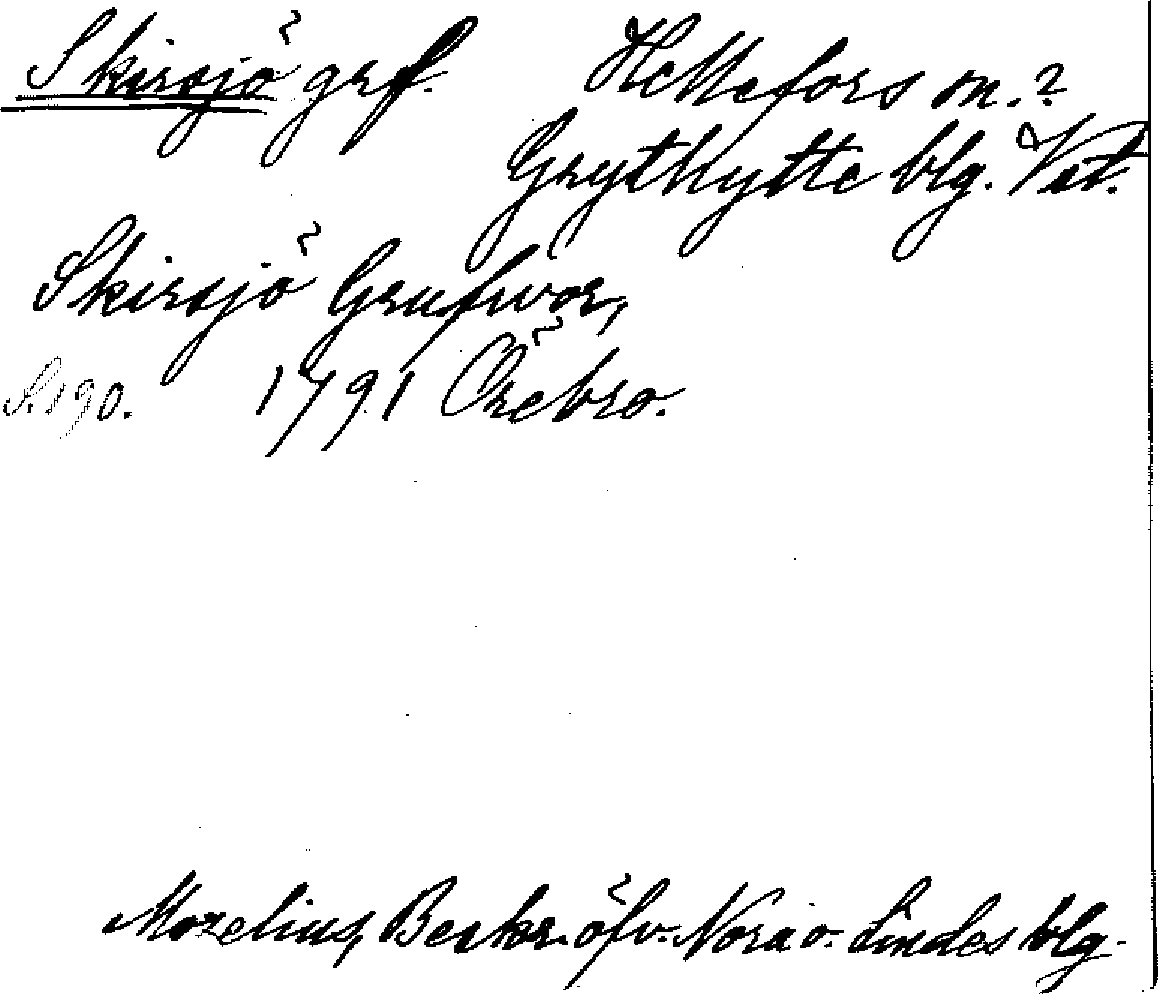 Skirsjö grf. Hellefors sn.?
Grythytte blg. Vst.
Skirsjö Grufwor,
S. 190. 1791 Örebro.
Morelius, Beskr. öfv. Nora o. Lindes blg.